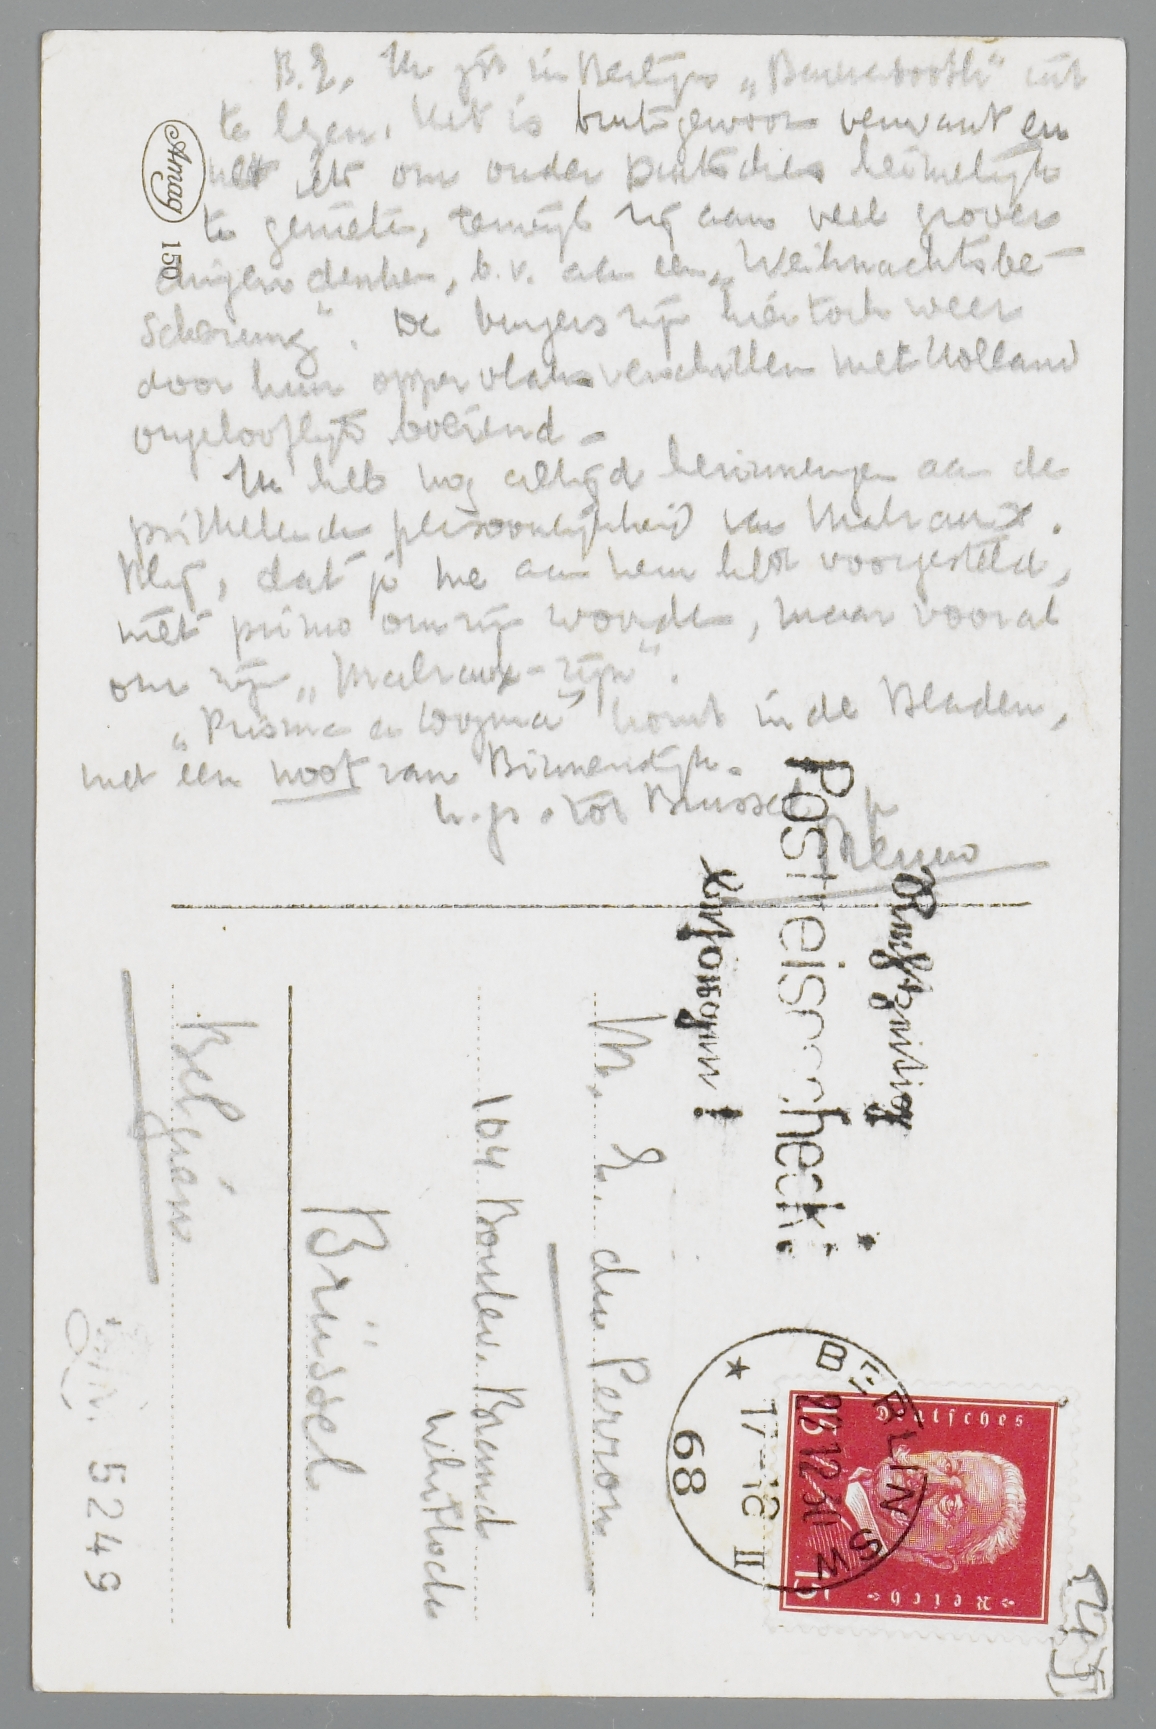 B.E. Ik zit in Berlijn „Barnabooth" uit
te lezen. Het is buitengewoon verwant en
net iets om onder heimelijk
te genieten, terwijl zij aan veel grovere
dingen denken, b.v. aan een „Weihnachtsbe-
scherung". De burgers zijn hier toch weer
door hun oppervlakteverschillen met Holland
ongelooflijk boeiend –
Ik heb nog altijd herinneringen aan de
prikkelende persoonlijkheid van Malraux.
Blij, dat je me aan hem hebt voorgesteld,
niet primo om zijn woorden, maar vooral
om zijn „Malraux-zijn".
„Prisma en Dogma" komt in de Bladen,
met een noot van Binnendijk.
h.gr. tot Brussel je
Menno
Amag 150
Rechtzeitig
Postreisescheck
besorgen!
BERLIN SW
28.12.30
17-18 II
68
Deutsches
Reich
15 15
M. E. du Perron
104 Boulev. Brand
Whitlock
Brüssel
Belgien
5249